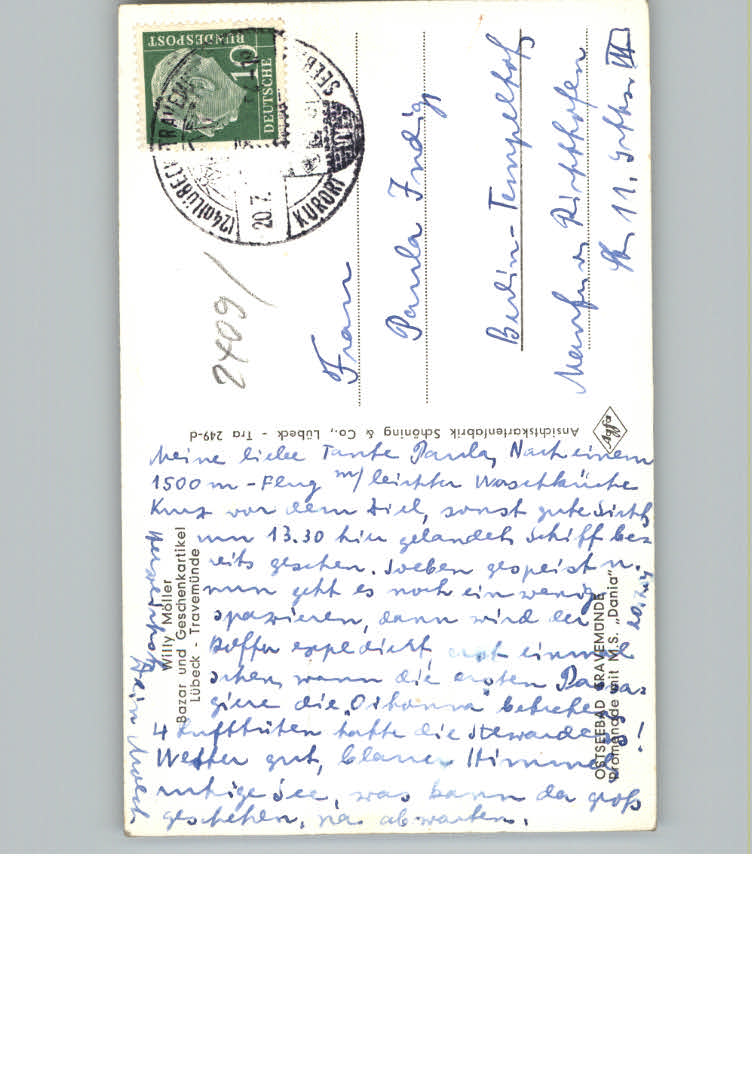 Meine liebe Tante Paula, Nach einem
1500 m - Flug m/ leichter Waschküche
kurz vor dem Ziel, sonst gute Sicht
um 13.30 hier gelandet, Schiff be=
reits gesehen. Soeben gespeist u.
nun geht es noch ein wenig
spazieren, dann wird der
Koffer expediert, erst einmal
sehen, wann die ersten Passa=
giere die „Oihonna" betreten!
4 Lufttüten hatte die Stewardess!
Wetter gut, blauer Himmel
ruhige See, was kann da groß
geschehen, na abwarten.
Herzlichst
Dein
20.7.
Frau
Paula
Berlin-Tempelhof
Manfred v. Richthofen
Str 11.
2409/
DEUTSCHE
BUNDESPOST
10
(24a) LÜBECK-TRAVEMÜNDE
20.7.
KURORT
Ansichtskartenfabrik Schöning & Co., Lübeck - Tra 249-d
Agfa
Willy Möller
Bazar und Geschenkartikel
Lübeck - Travemünde
OSTSEEBAD TRAVEMÜNDE
Promenade mit M.S. „Dania"